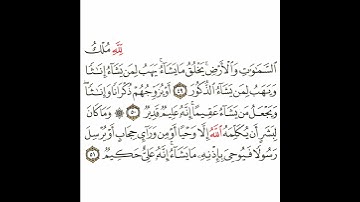 لِلَّهِ مُلْكُ
السَّمَٰوَٰتِ وَالْأَرْضِ ۚ يَخْلُقُ مَا يَشَاءُ ۚ يَهَبُ لِمَن يَشَاءُ إِنَٰثًا
وَيَهَبُ لِمَن يَشَاءُ الذُّكُورَ ٤٩ أَوْ يُزَوِّجُهُمْ ذُكْرَانًا وَإِنَٰثًا ۖ
وَيَجْعَلُ مَن يَشَاءُ عَقِيمًا ۚ إِنَّهُ عَلِيمٌ قَدِيرٌ ٥٠ ۞ وَمَا كَانَ
لِبَشَرٍ أَن يُكَلِّمَهُ اللَّهُ إِلَّا وَحْيًا أَوْ مِن وَرَآئِ حِجَابٍ أَوْ يُرْسِلَ
رَسُولًا فَيُوحِيَ بِإِذْنِهِ مَا يَشَاءُ ۚ إِنَّهُ عَلِيٌّ حَكِيمٌ ٥١